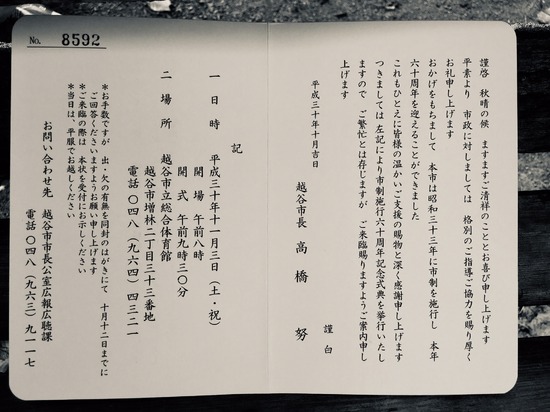 謹啓　秋晴の候　ますますご清祥のこととお喜び申し上げます
平素より　市政に対しましては　格別のご指導ご協力を賜り厚く
お礼申し上げます
おかげをもちまして　本市は昭和三十三年に市制を施行し　本年
六十周年を迎えることができました
これもひとえに皆様の温かいご支援の賜物と深く感謝申し上げます
つきましては　左記により市制施行六十周年記念式典を挙行いたし
ますので　ご繁忙とは存じますが　ご来臨賜りますようご案内申し
上げます
謹白
平成三十年十月吉日
越谷市長　高橋　努
記
一　日時　平成三十年十一月三日（土・祝）
開場　午前八時
開式　午前九時三〇分
二　場所　越谷市立総合体育館
越谷市増林二丁目三十三番地
電話〇四八（九六四）四三二一
＊お手数ですが　出・欠の有無を同封のはがきにて　十月十二日までに
ご回答くださいますようお願い申し上げます
＊ご来臨の際は　本状を受付にお示しください
＊当日は、平服でお越しください
お問い合わせ先　越谷市市長公室広報広聴課
電話〇四八（九六三）九一一七
No. 8592